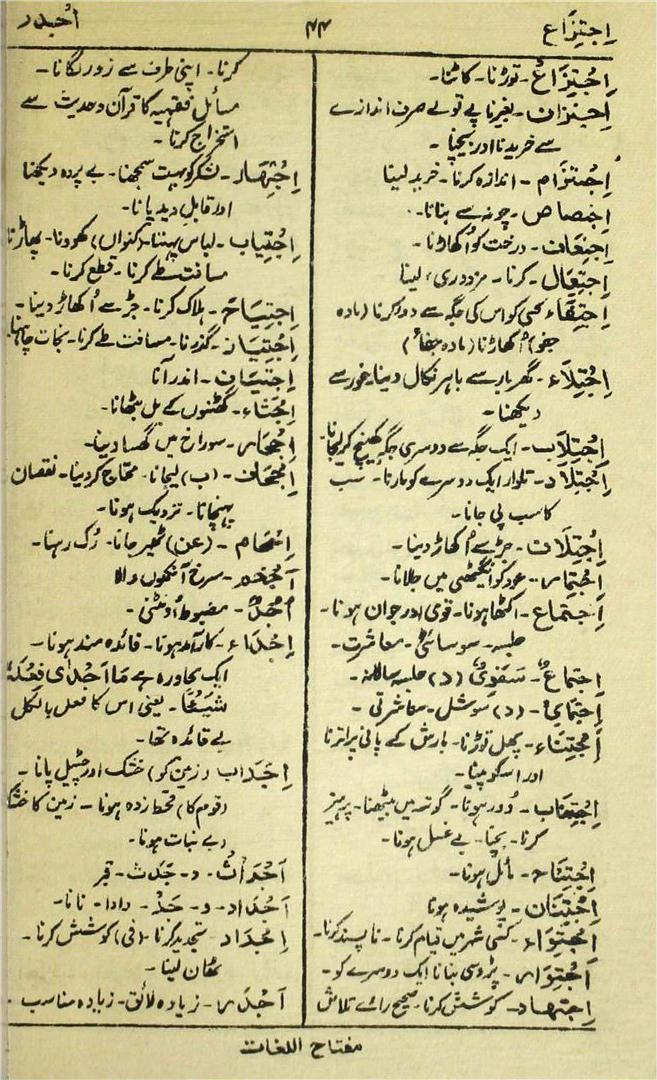 اِجتِزَاع
۴۴
اَجُدر
اِجْتِزَاعٌ۔ توڑنا۔ کاٹنا۔
اِجتِزان۔ بغیر ناپے تولے صرف اندازے
سے خریدنا اور بیچنا۔
اِجْتِزَام۔ اندازہ کرنا۔ خرید لینا
اِجتِصاص۔ چونہ سے بنانا۔
اِجتِعَاف۔ درخت کو اُکھاڑنا۔
اِجتِعَال۔ کرنا۔ مزدوری، لینا
اِجتِفَاء کسی کو اس کی جگہ سے دور کرنا (مادہ
جفو) اُکھاڑنا (مادہ جفاء)
اِجْتِلَاء۔ گھر بار سے باہر نکال دینا۔ غور سے
دیکھنا۔
اِجْتِلَاب۔ ایک جگہ سے دوسری جگہ کھینچ کر لیجانا۔
اِجْتِلَاد۔ تلوار ایک دوسرے کو مارنا۔ سب
کا سب پی جانا۔
اِجْتِلَات۔ جڑ سے اُکھاڑ دینا۔
اِجْتِمَار۔ عود کو انگیٹھی میں جلانا۔
اِجتماع۔ اکٹھا ہونا۔ قوی اور جوان ہونا۔
جلسہ۔ سوسائٹی۔ معاشرت۔
اِجتماعٌ۔ سَنَوِیٌّ (د) جلسہ سالانہ۔
اِجتِمَاعِیٌّ۔ (د) سوشل۔ معاشرتی۔
اِجْتِنَاء۔ پھل توڑنا۔ بارش کے پانی پر اترنا
اور اسکو پینا۔
اِجْتِنَاب۔ دور ہونا۔ گوشہ میں بیٹھنا۔ پرہیز
کرنا۔ بچنا۔ بے غسل ہونا۔
اِجْتِنَاح۔ مائل ہونا۔
اِجْتِنَان۔ پوشیدہ ہونا
اِجْتِوَاء۔ کسی شہر میں قیام کرنا۔ ناپسند کرنا۔
اِجْتِوَار۔ پڑوسی بنانا ایک دوسرے کو۔
اِجتِهاد۔ کوشش کرنا۔ صحیح رائے تلاش
کرنا۔ اپنی طرف سے زور لگانا۔
مسائل فقہیہ کا قرآن و حدیث سے
استخراج کرنا۔
اِجْتِهَار۔ لشکر کو بہت سمجھنا۔ بے پردہ دیکھنا
اور قابل دید پانا۔
اِجْتِیاب۔ لباس پہننا۔ (کنواں) کھودنا۔ پھاڑنا
مسافت طے کرنا۔ قطع کرنا۔
اِجتِیَاح۔ ہلاک کرنا۔ جڑ سے اُکھاڑ دینا۔
اِجْتِیَاز۔ گذرنا۔ مسافت طے کرنا۔ نجات چاہنا۔
اِجتیاف۔ اندر آنا
اِجْثَاء۔ گھٹنوں کے بل بٹھانا۔
اِجحار۔ سوراخ میں گھسا دینا۔
اِجْحَاف۔ (ب) لیجانا۔ محتاج کر دینا۔ نقصان
پہنچانا۔ نزدیک ہونا۔
اِجْحَام۔ (عن) ٹھہر جانا۔ رُک رہنا۔
اَجْحَم۔ سرخ آنکھوں والا
اُجُدٌ۔ مضبوط اُونٹنی۔
اِجْدَاء۔ کارآمد ہونا۔ فائدہ مند ہونا۔
ایک محاورہ ہے مَا اَجْدٰی فِعْلُهٗ
شَیْئًا۔ یعنی اس کا فعل بالکل
بے فائدہ تھا۔
اِجدَاب (زمین کو) خشک اور چٹیل پانا۔
(قوم کا) قحط زدہ ہونا۔ زمین کا خشک
بے نبات ہونا۔
اَجْدَاثٌ۔ و۔ جَدَث۔ قبر
اَجْدَاد۔ و۔ جَدّ۔ دادا۔ نانا۔
اِجْدَاد تجدید کرنا۔ (فی) کوشش کرنا۔
ٹھان لینا۔
اَجْدَر۔ زیادہ لائق۔ زیادہ مناسب۔
مفتاح اللغات